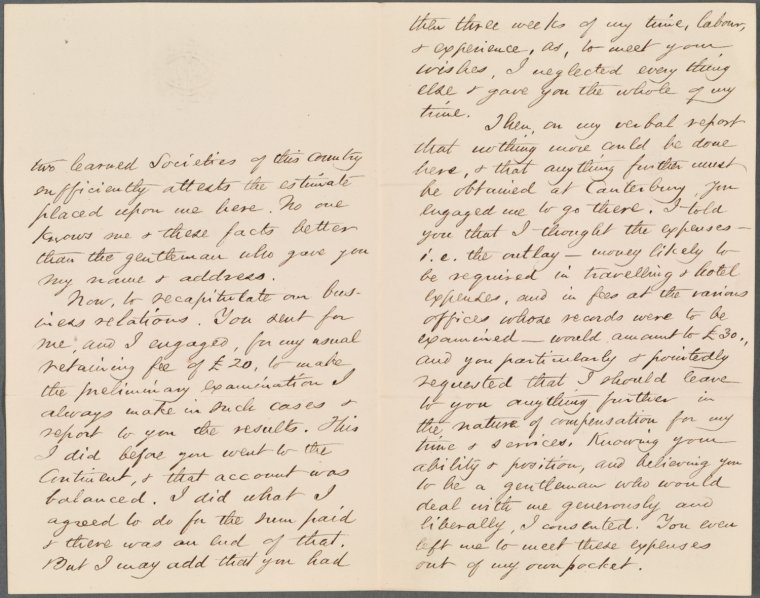 two learned Societies of this country
sufficiently attests the estimate
placed upon me here. No one
knows me & these facts better
than the gentleman who gave you
my name & address.
Now, to recapitulate our bus-
iness relations. You sent for
me, and I engaged, for my usual
retaining fee of £20, to make
the preliminary examination I
always make in such cases &
report to you the results. This
I did before you went to the
Continent, & that account was
balanced. I did what I
agreed to do for the sum paid
& there was an end of that.
But I may add that you had
then three weeks of my time, labour,
& experience, as, to meet your
wishes, I neglected every thing
else & gave you the whole of my
time.
Then, on my verbal report
that nothing more could be done
here, & that anything further must
be obtained at Canterbury, you
engaged me to go there. I told
you that I thought the expenses —
i.e. the outlay — money likely to
be required in travelling & hotel
expenses, and in fees at the various
offices whose records were to be
examined — would amount to £30.,
and you particularly & pointedly
requested that I should leave
to you anything further in
the nature of compensation for my
time & services. Knowing your
ability & position, and believing you
to be a gentleman who would
deal with me generously and
liberally, I consented. You even
left me to meet these expenses
out of my own pocket.